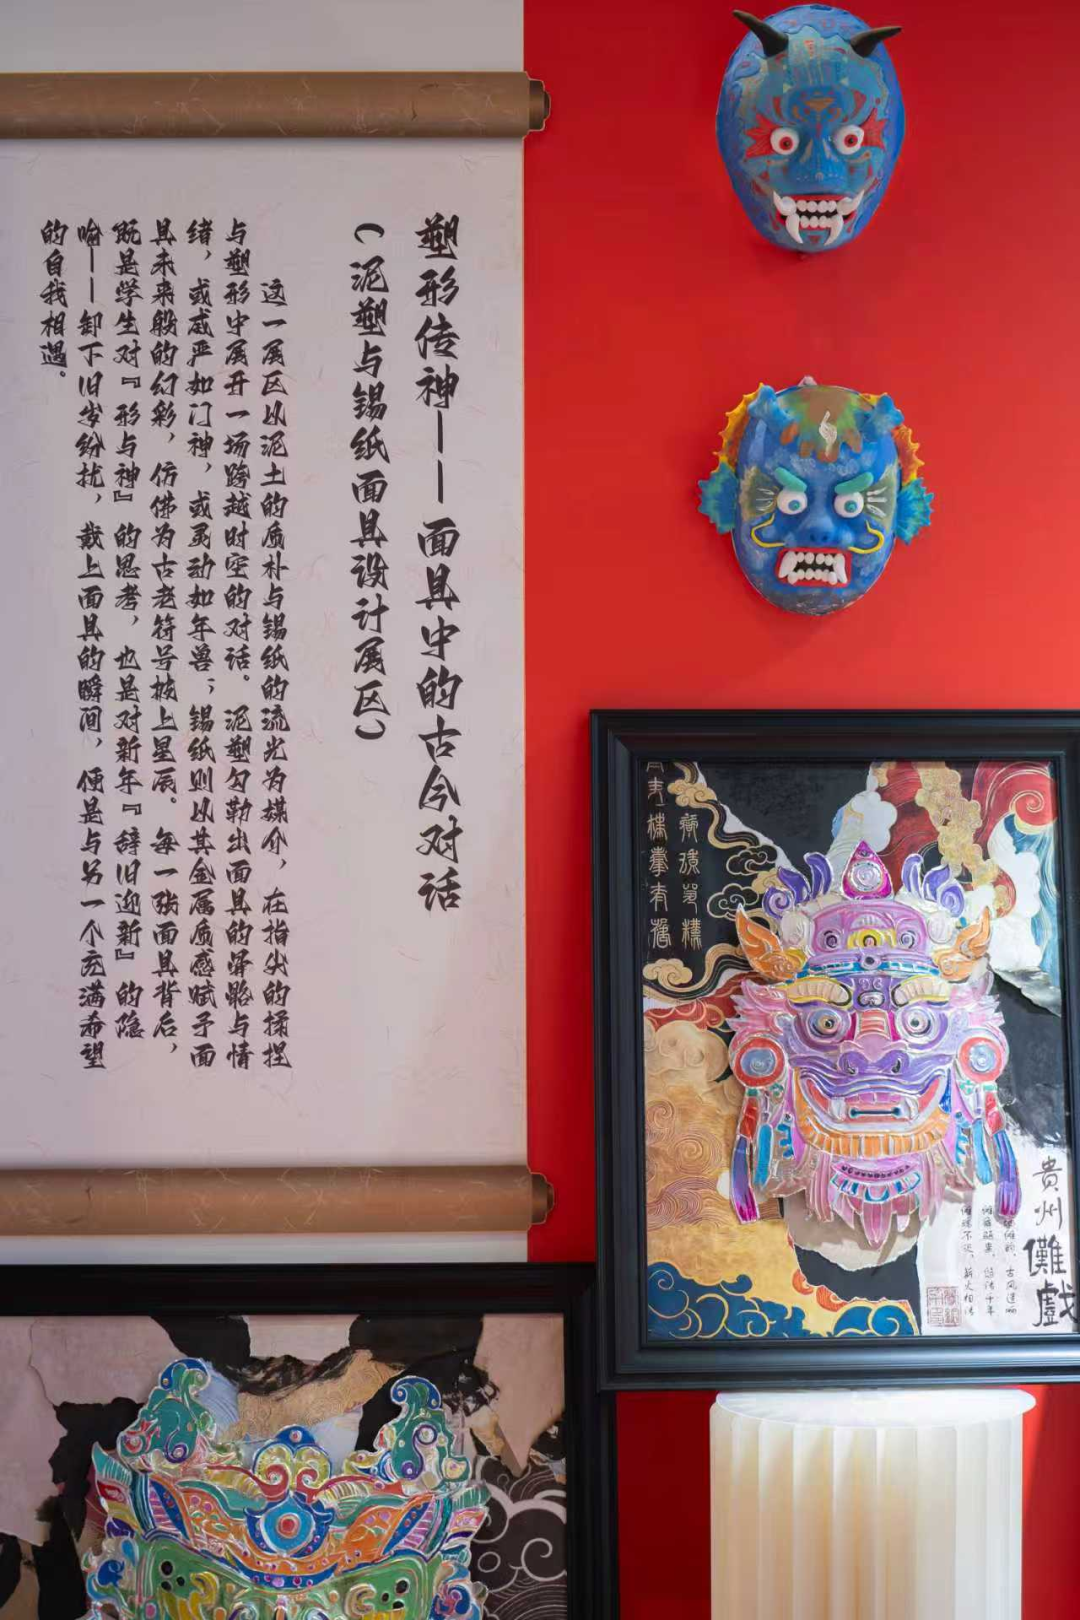 塑形传神——面具中的古今对话
（泥塑与锡纸面具设计展区）
这一展区以泥土的质朴与锡纸的流光为媒介，在指尖的揉捏
与塑形中展开一场跨越时空的对话。泥塑勾勒出面具的骨骼与情
绪，或威严如门神，或灵动如年兽；锡纸则以其金属质感赋予面
具未来般的幻彩，仿佛为古老符号披上星辰。每一张面具背后，
既是学生对『形与神』的思考，也是对新年『辞旧迎新』的隐
喻——卸下旧岁纷扰，戴上面具的瞬间，便是与另一个充满希望
的自我相遇。
贵州
傩戏